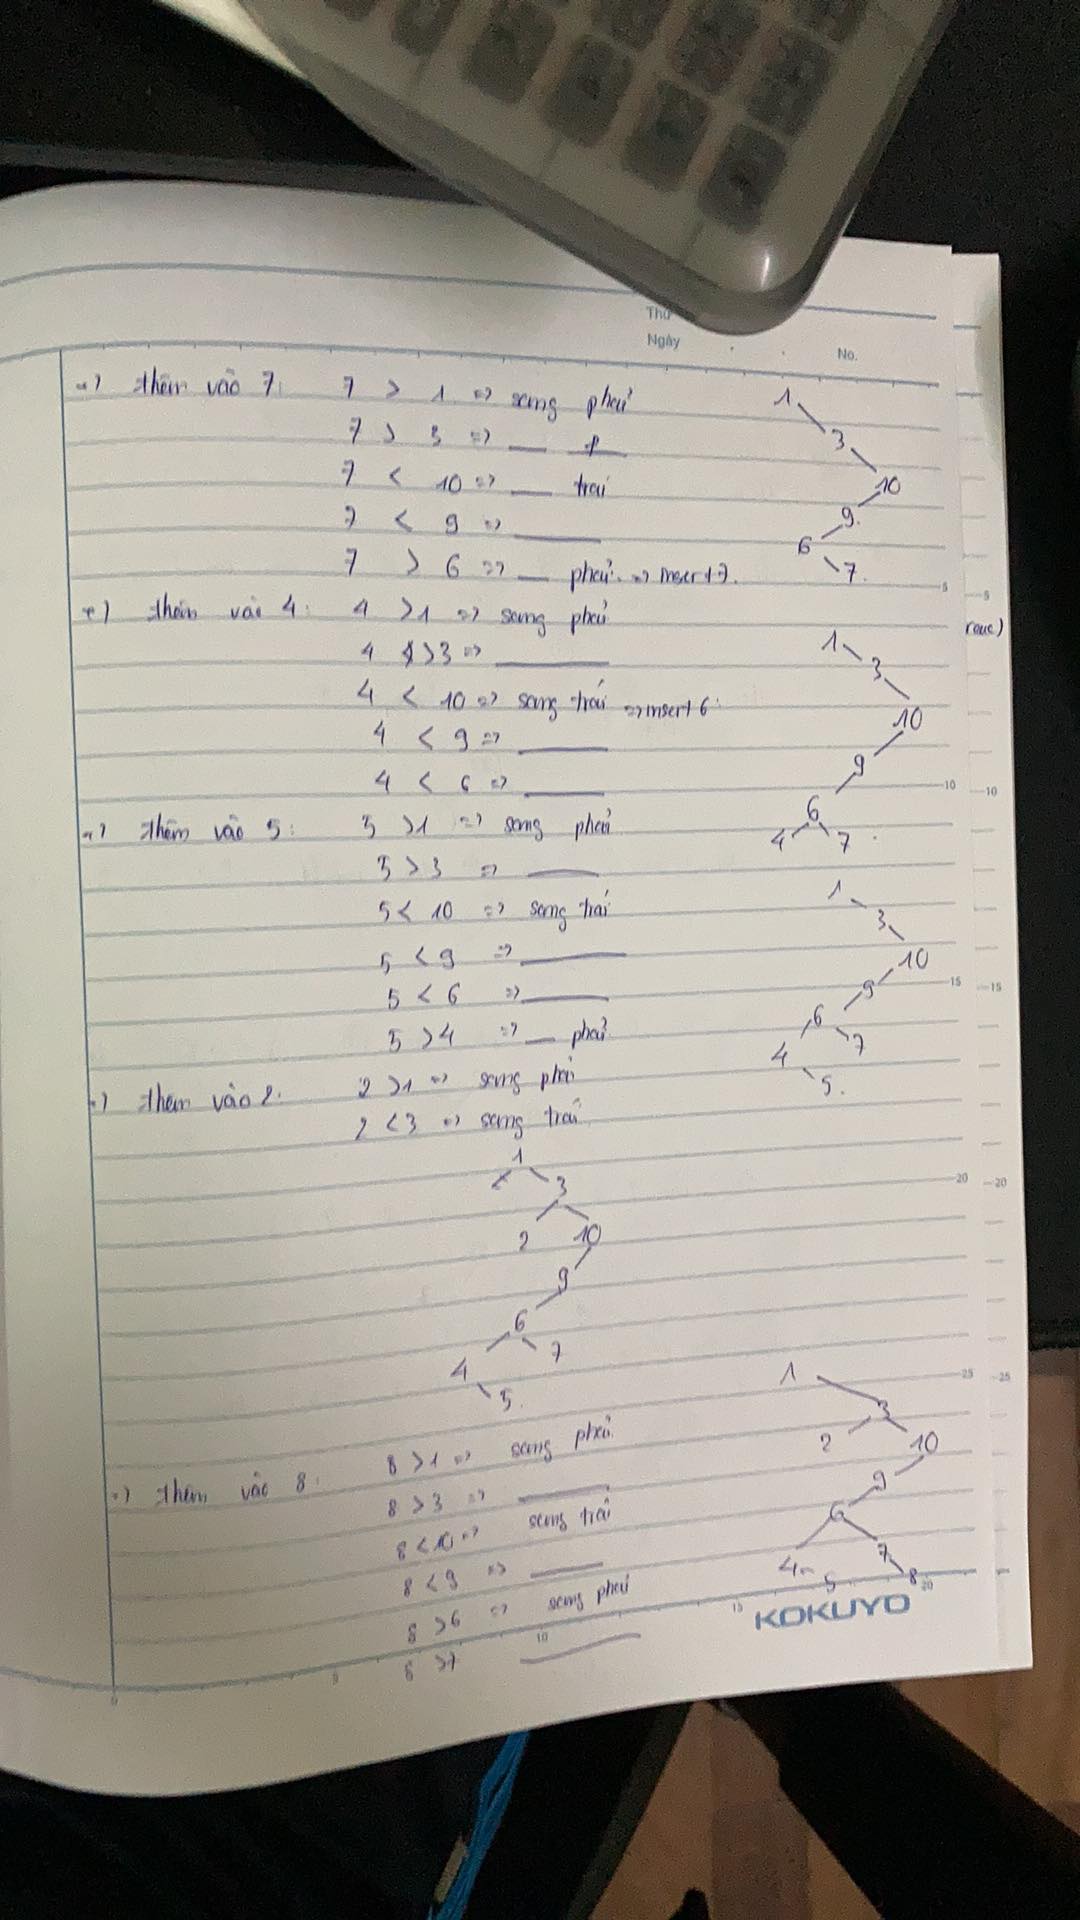 Thứ
Ngày
No.
+) thêm vào 7: 7 > 1 => sang phải
7 > 3 => __ p
7 < 10 => __ trái
7 < 9 => __
7 > 6 => __ phải => insert 7.
1
3
10
9
6
7
+) thêm vào 4: 4 > 1 => sang phải
4 > 3 => __
4 < 10 => sang trái => insert 6
4 < 9 => __
4 < 6 => __
1
3
10
9
6
4 7
+) thêm vào 5: 5 > 1 => sang phải
5 > 3 => __
5 < 10 => sang trái
5 < 9 => __
5 < 6 => __
5 > 4 => __ phải
1
3
10
9
6
4 7
5
+) thêm vào 2: 2 > 1 => sang phải
2 < 3 => sang trái
1
3
2 10
9
6
4 7
5
+) thêm vào 8: 8 > 1 => sang phải
8 > 3 => __
8 < 10 => sang trái
8 < 9 => __
8 > 6 => sang phải
8 > 7 __
1
3
2 10
9
6
4 7
5 8
5
10
15
20
25
5
10
15
20
25
10
15
20
KOKUYO